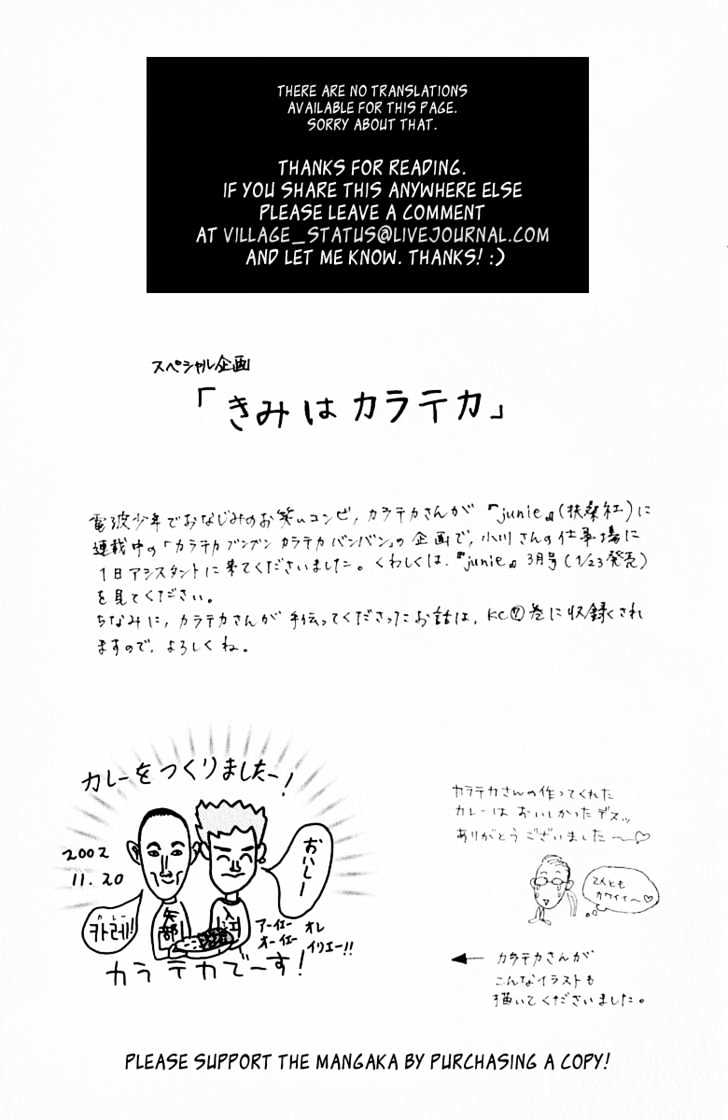 THERE ARE NO TRANSLATIONS
AVAILABLE FOR THIS PAGE.
SORRY ABOUT THAT.
THANKS FOR READING.
IF YOU SHARE THIS ANYWHERE ELSE
PLEASE LEAVE A COMMENT
AT VILLAGE_STATUS@LIVEJOURNAL.COM
AND LET ME KNOW. THANKS! :)
スペシャル企画
「きみはカラテカ」
電波少年でおなじみのお笑いコンビ,カラテカさんが『junie』(扶桑社)に
連載中の「カラテカブンブンカラテカバンバン」の企画で,小川さんの仕事場に
1日アシスタントに来てくださいました。くわしくは,『junie』3月号(1/23発売)
を見てください。
ちなみに,カラテカさんが手伝ってくださったお話は,KC 巻に収録され
ますので,よろしくね。
カレーをつくりましたー!
2002
11.20
おいしー
카레!
矢部
入江
アーイエー オレ
オーイエー イリエー!!
カラテカでーす!
カラテカさんの作ってくれた
カレーはおいしかったデスッ
ありがとうございました〜♡
2人とも
カワイイ〜♡
← カラテカさんが
こんなイラストも
描いてくださいました。
PLEASE SUPPORT THE MANGAKA BY PURCHASING A COPY!